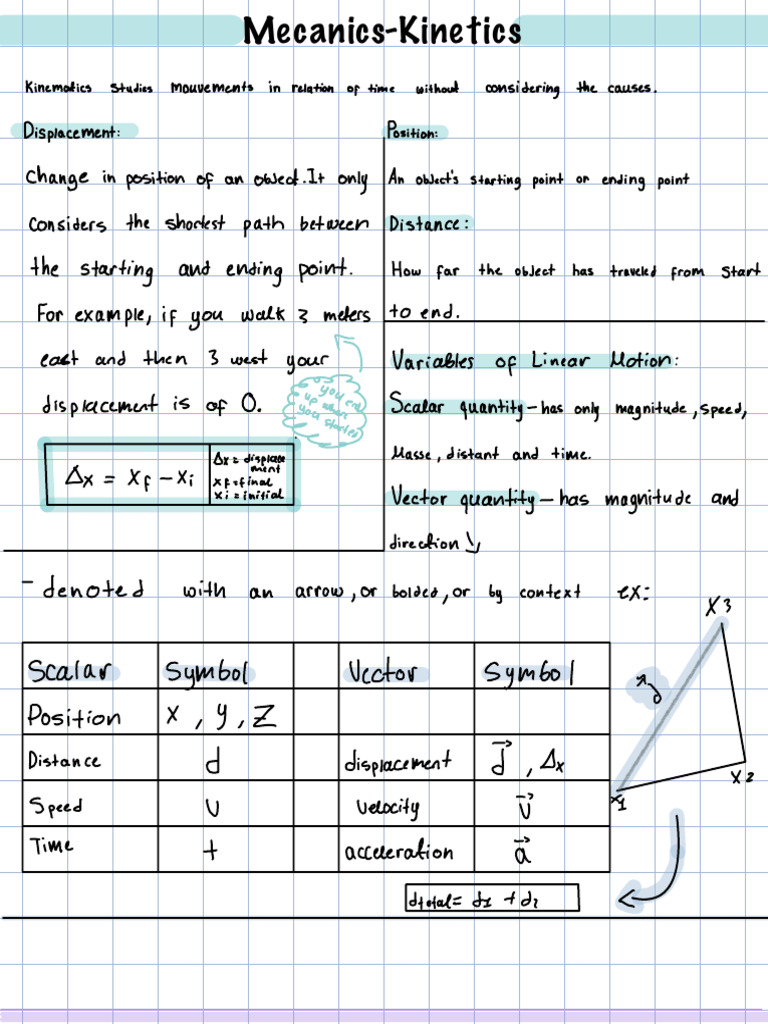 Mecanics-Kinetics
Kinematics studies mouvements in relation of time without considering the causes.
Displacement:
change in position of an object. It only
considers the shortest path between
the starting and ending point.
For example, if you walk 3 meters
east and then 3 west your
displacement is of 0.
you end
up when
you started
Δx = xf - xi
Δx = displace
ment
xf = final
xi = initial
Position:
An object's starting point or ending point
Distance:
How far the object has traveled from start
to end.
Variables of Linear Motion:
Scalar quantity - has only magnitude, speed,
Masse, distant and time.
Vector quantity - has magnitude and
direction ↘
- denoted with an arrow, or bolded, or by context ex:
Scalar Symbol Vector Symbol
Position x, y, z
Distance d displacement d⃗, Δx
Speed v velocity v⃗
Time t acceleration a⃗
x3
d⃗
x2
x1
dtotal = d1 + d2